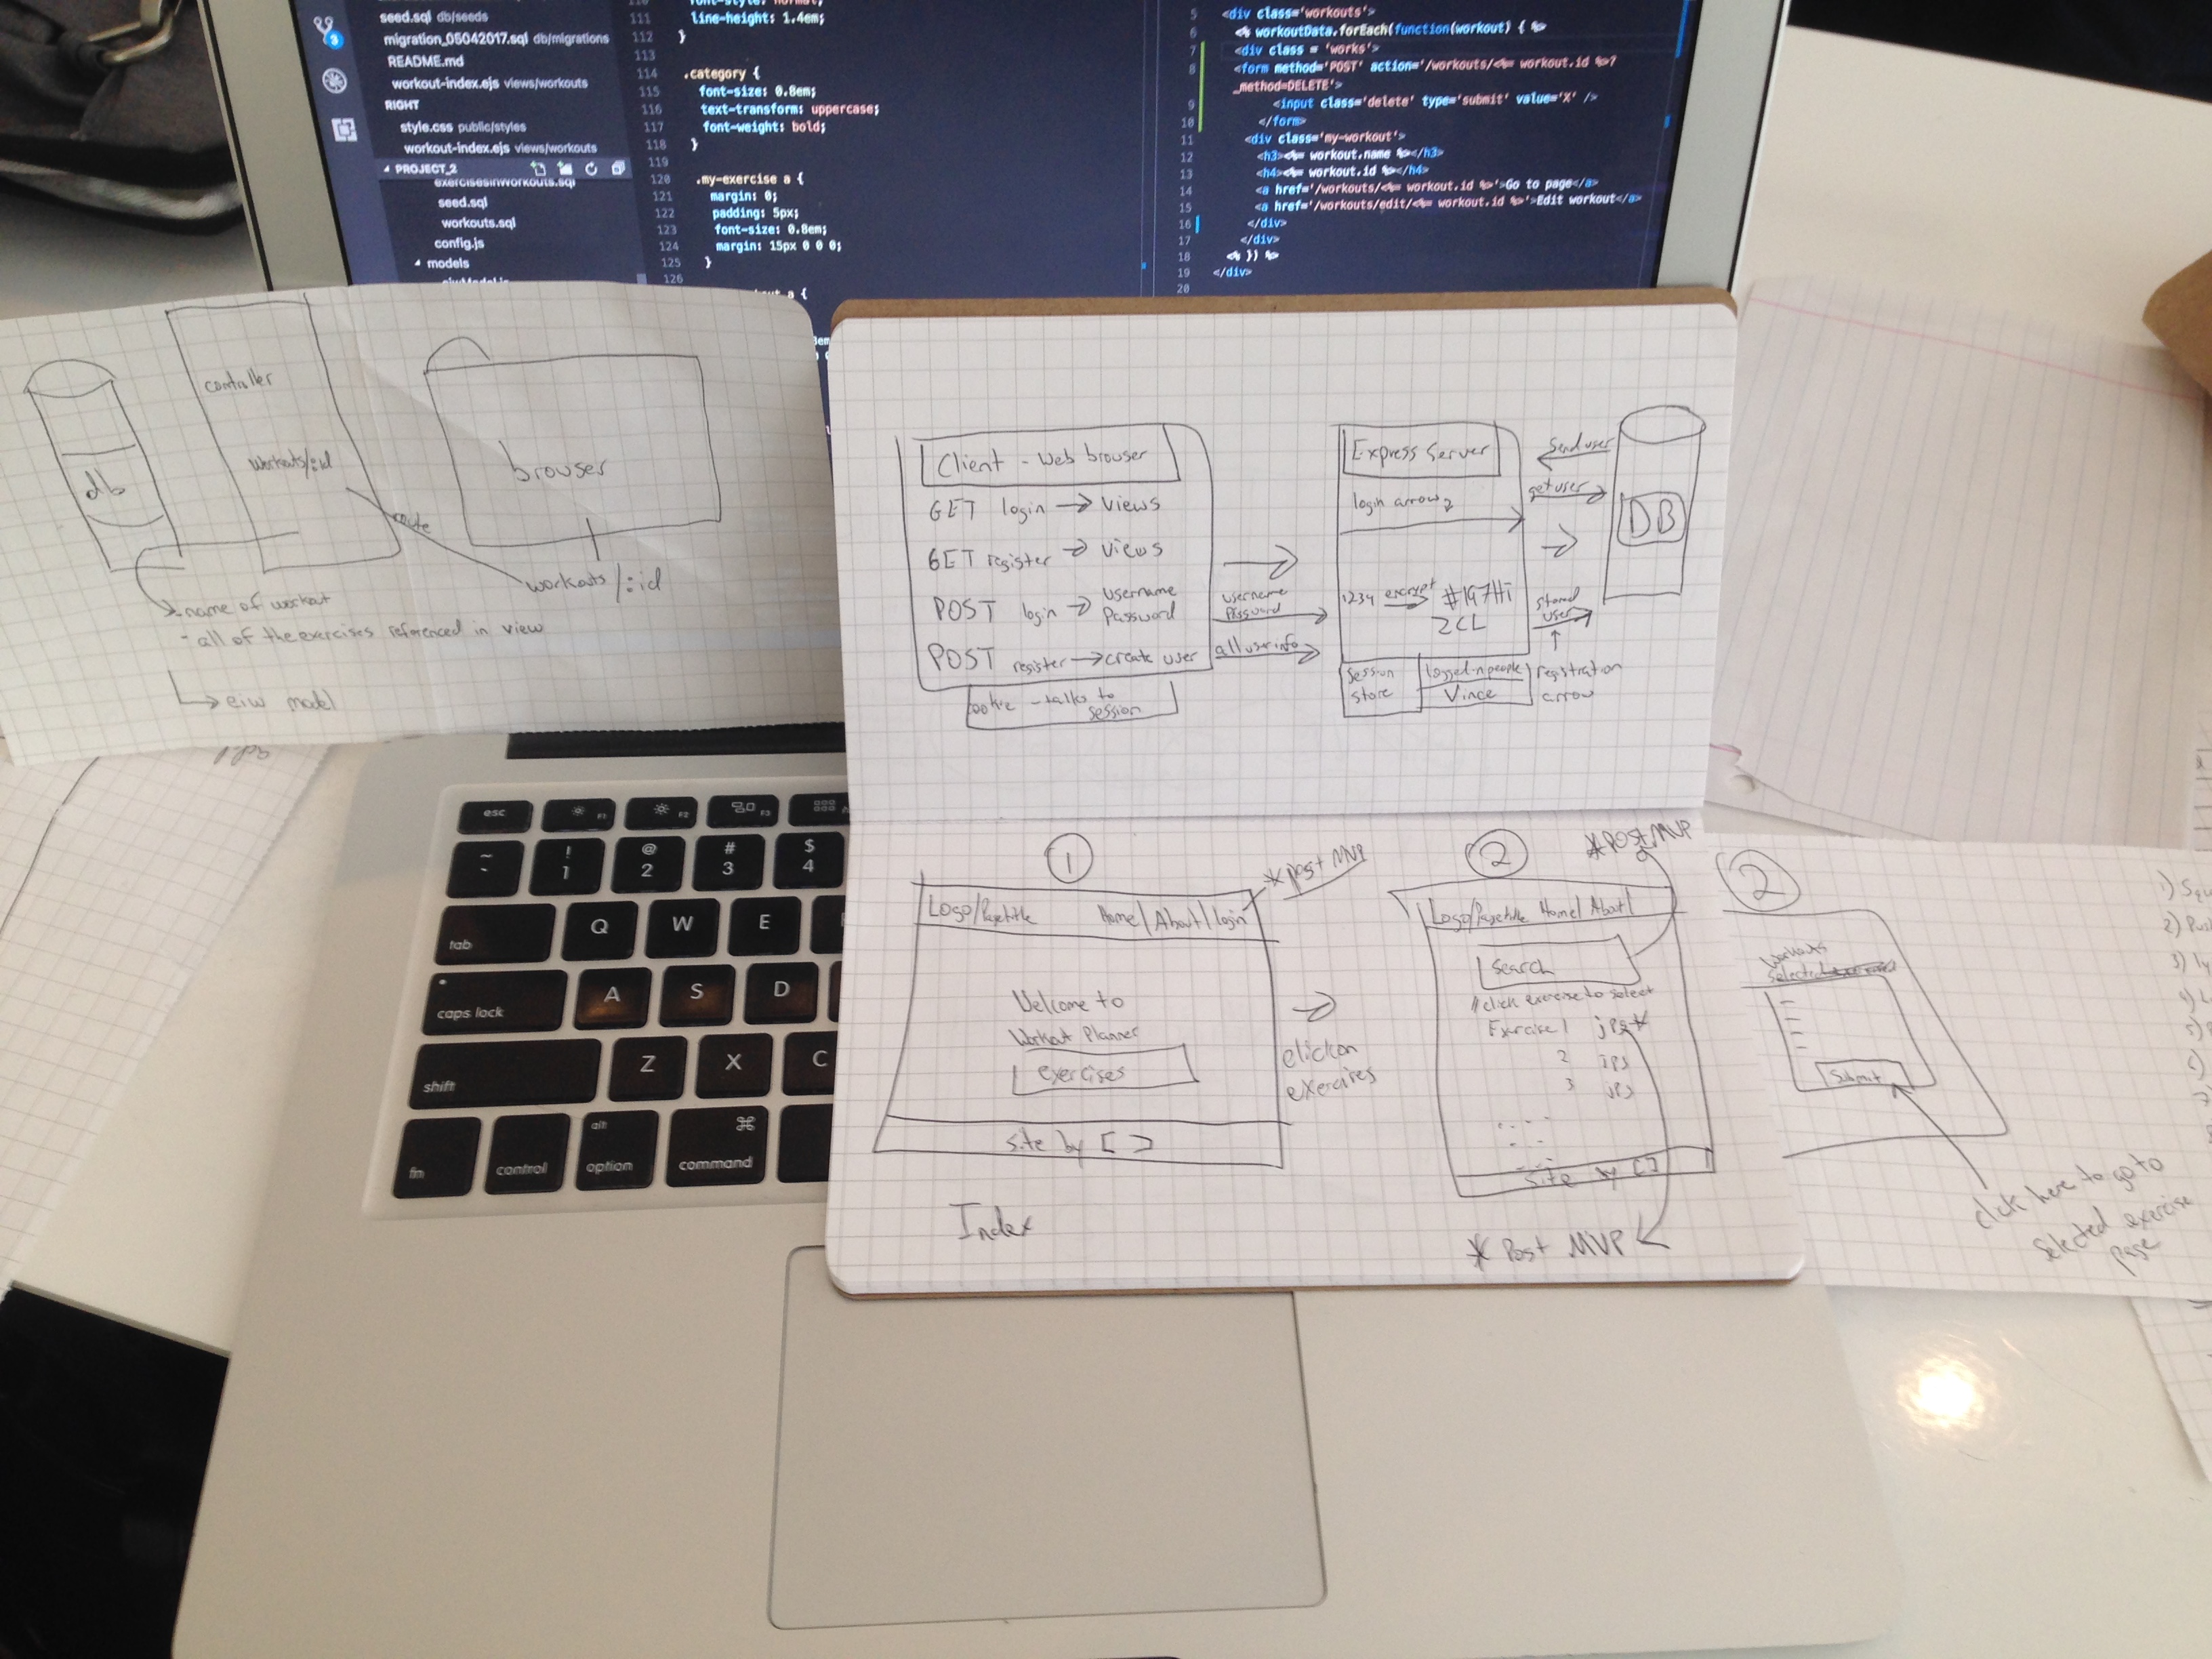 seed.sql db/seeds
migration_05042017.sql db/migrations
README.md
workout-index.ejs views/workouts
RIGHT
style.css public/styles
workout-index.ejs views/workouts
PROJECT_2
exercisesinworkouts.sql
seed.sql
workouts.sql
config.js
models
3
111 line-height: 1.4em;
112 }
113
114 .category {
115 font-size: 0.8em;
116 text-transform: uppercase;
117 font-weight: bold;
118 }
119
120 .my-exercise a {
121 margin: 0;
122 padding: 5px;
123 font-size: 0.8em;
124 margin: 15px 0 0 0;
125 }
126
5 <div class='workouts'>
6 <% workoutData.forEach(function(workout) { %>
7 <div class = 'works'>
8 <form method='POST' action='/workouts/<%= workout.id %>?
_method=DELETE'>
9 <input class='delete' type='submit' value='X' />
10 </form>
11 <div class='my-workout'>
12 <h3><%= workout.name %></h3>
13 <h4><%= workout.id %></h4>
14 <a href='/workouts/<%= workout.id %>'>Go to page</a>
15 <a href='/workouts/edit/<%= workout.id %>'>Edit workout</a>
16 </div>
17 </div>
18 <% }) %>
19 </div>
20
controller
workouts/:id
db
browser
route
workouts/:id
-name of workout
- all of the exercises referenced in view
eiw model
Client - Web browser
GET login → views
GET register → views
POST login → username
Password
POST register → create user
ookie - talks to
session
username
Password
all user info
Express Server
login arrow
1234 encrypt → #197Hi
2CL
session
store
logged-in people
Vince
send user
get user
stored
user
registration
arrow
DB
1
* post MVP
Logo/Pagetitle Home/About/login
Welcome to
Workout Planner
exercises
site by [ ]
Index
click on
exercires
2
* POST MVP
Logo/Pagetitle Home/About/
Search
//click exercise to select
Exercise 1 jpg*
2 jpg
3 jpg
site by [ ]
* Post MVP
2
Workouts
Selected
Submit
click here to go to
Selected exercise
page
1)
2)
3)
4)
5)
esc
F1
F2
F3
~
!
1
@
2
#
3
$
4
tab
Q
W
E
caps lock
A
S
D
shift
Z
X
C
fn
control
alt
option
⌘
command